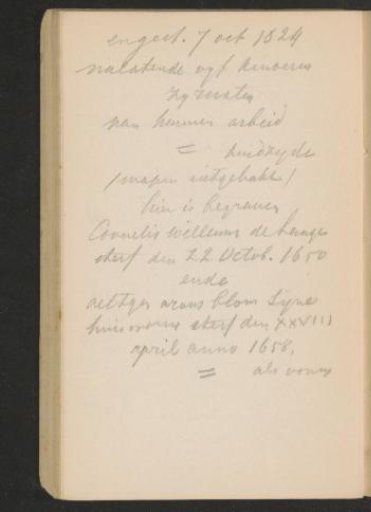 en gest. 7 oct 1824
nalatende vyf kinderen
zy rusten
van hunnen arbeid
= hindzyde
(wapen uitgehakt)
hier is begraven
Cornelis willems de Lange
sterf den 22 Octob. 1650
ende
aeltges arons blom Syne
huisvrouw sterf den XXVIII
april anno 1658.
= als voren